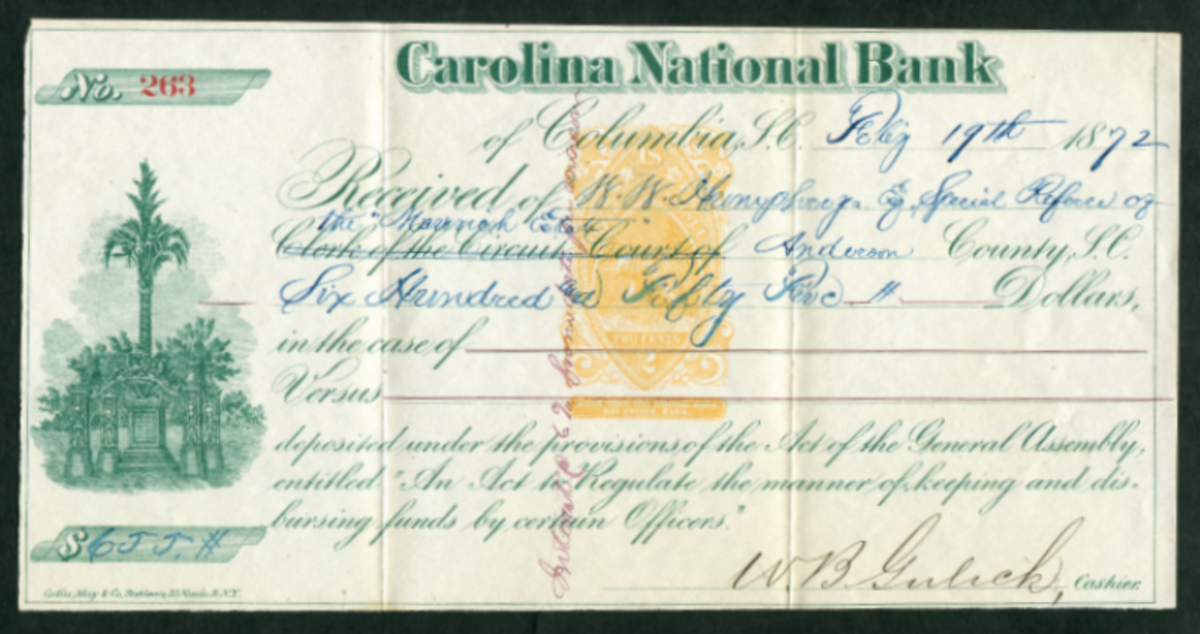 Carolina National Bank
No. 263
of Columbia, S.C. Feby 19th 1872
Received of W. W. Humphreys Esq. Special Referee of
the " Estate"
Clerk of the Circuit Court of Anderson County, S.C.
Six Hundred and Fifty Five # Dollars,
in the case of
Versus
deposited under the provisions of the Act of the General Assembly,
entitled "An Act to Regulate the manner of keeping and dis-
bursing funds by certain Officers."
$ 655. #
W. B. Gulick, Cashier.
US
TWO CENTS
2
Interest @ 6 %
& Co., Stationers, N.Y.